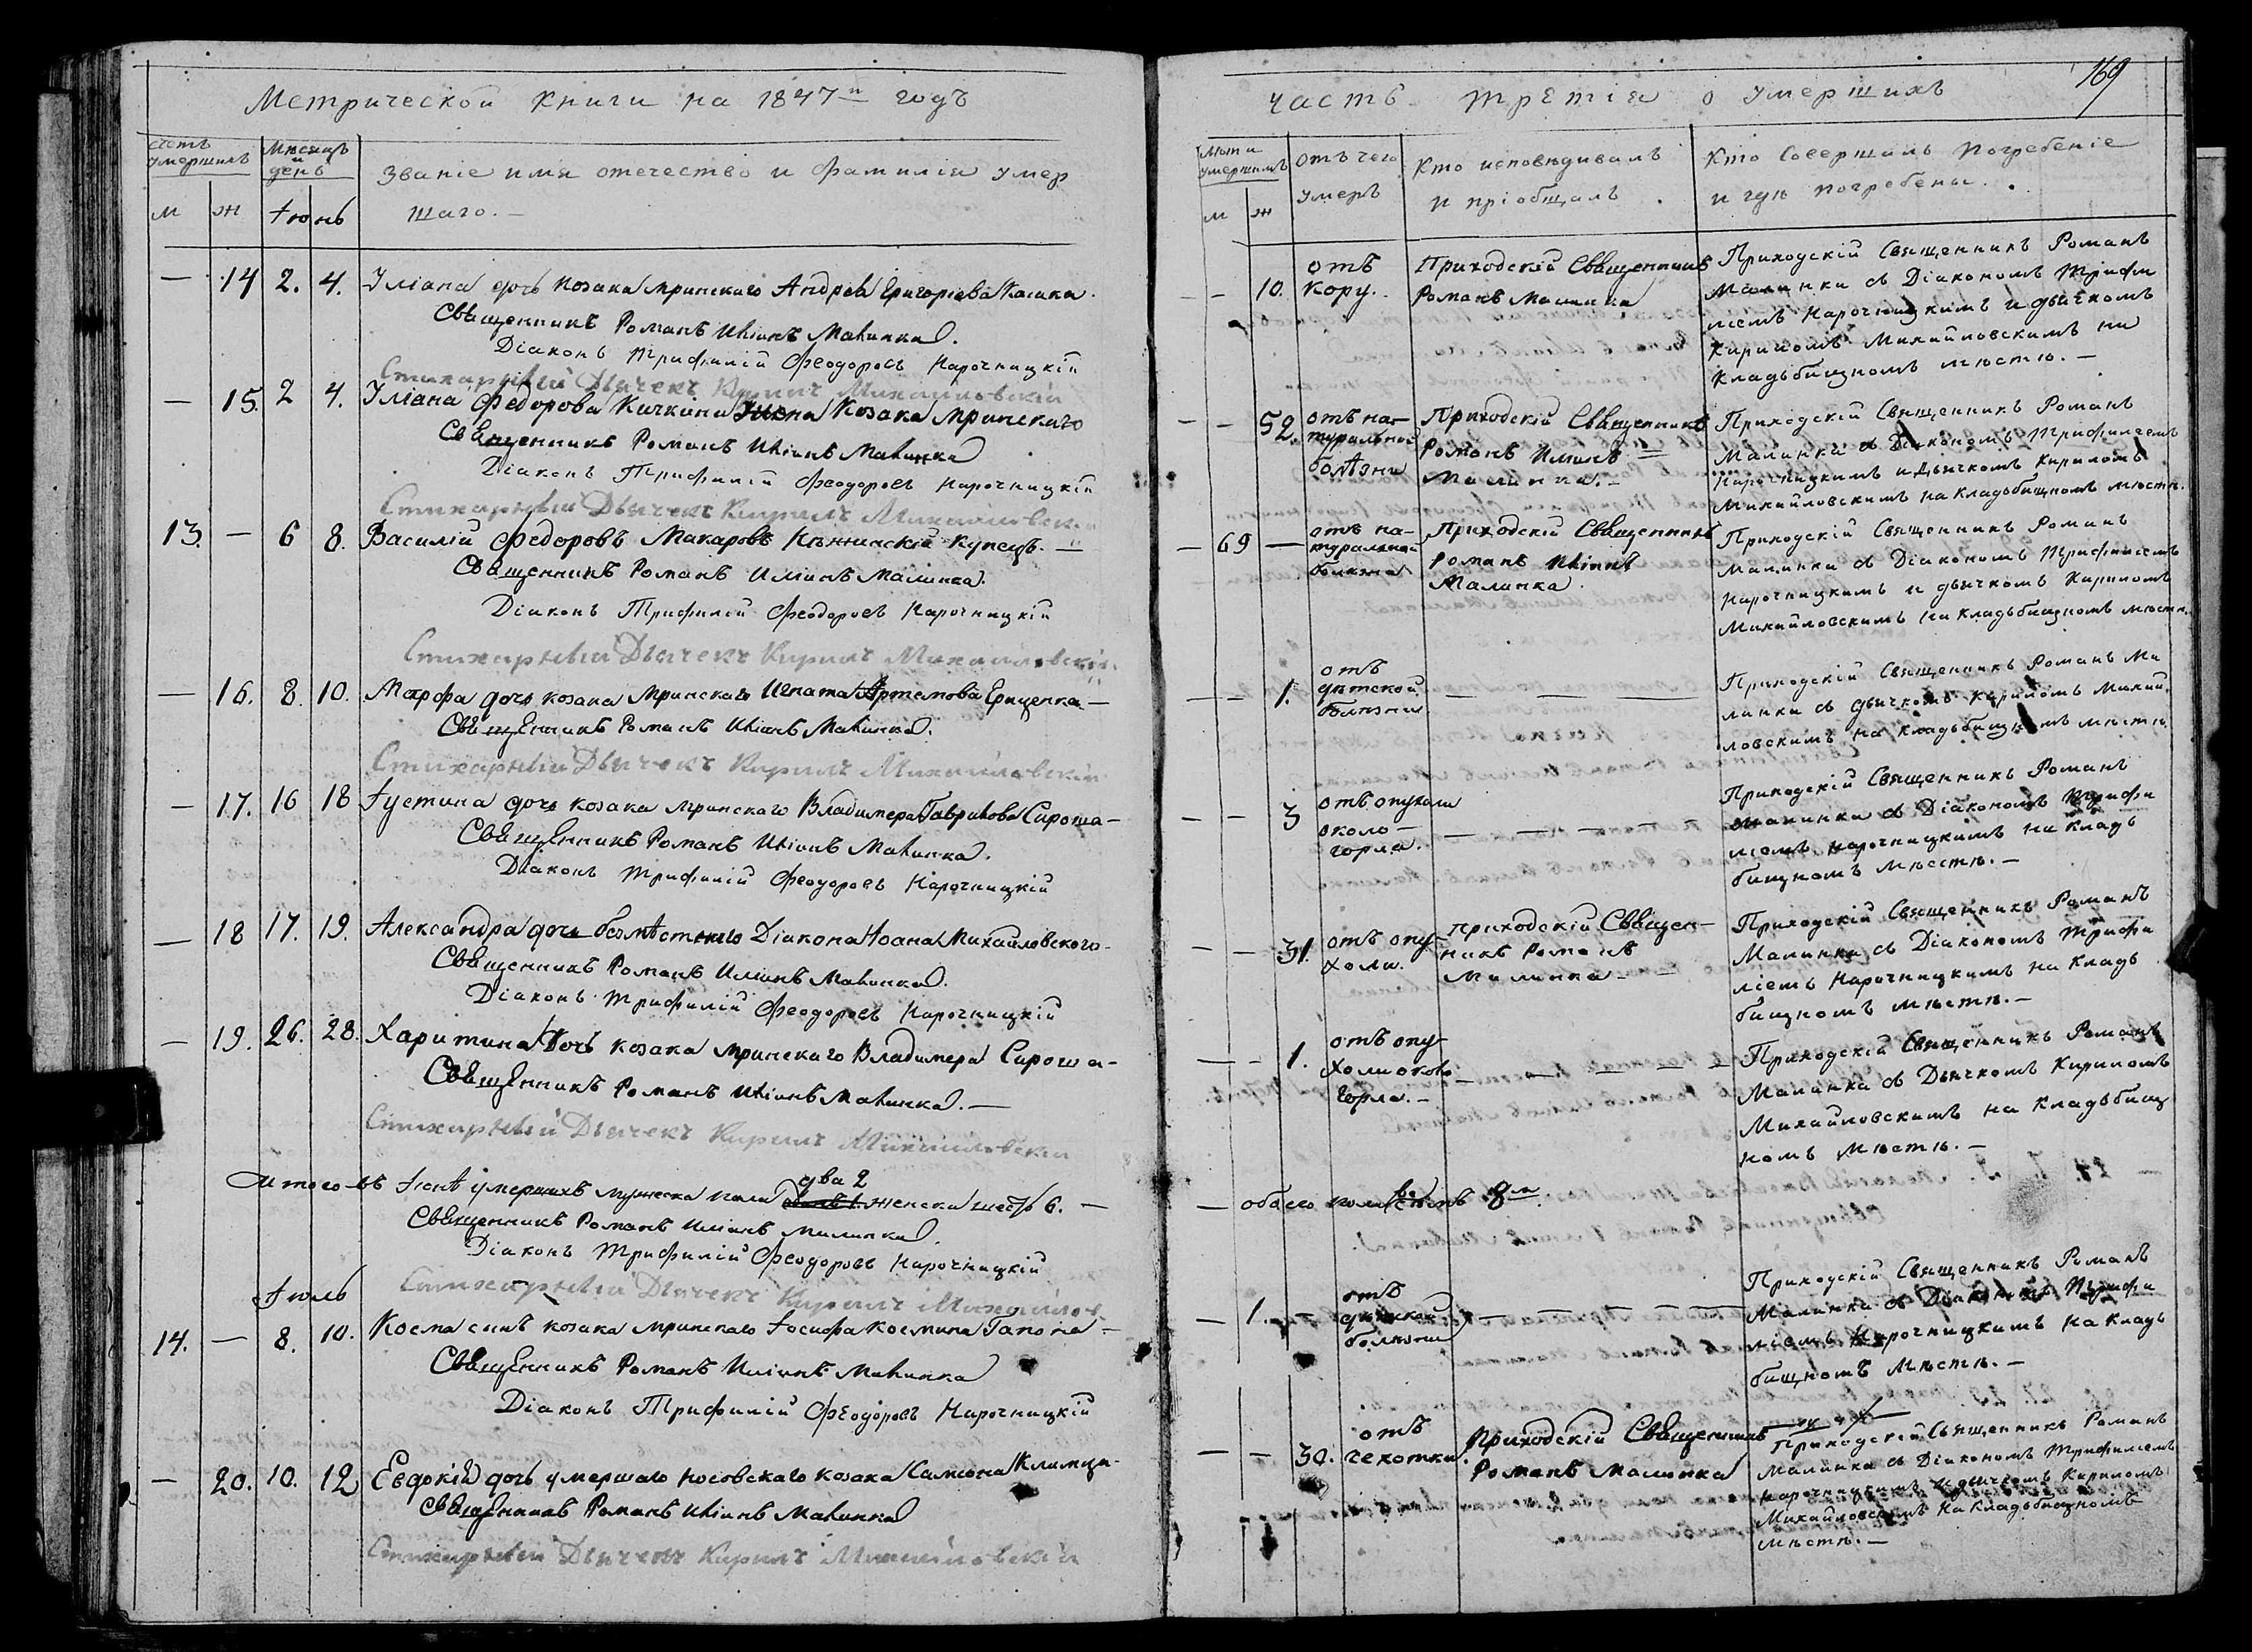 Метрической книги на 1847й годъ
счетъ умершихъ
Мѣсяцъ и день
Званіе имя отечество и фамилія умер
шаго. —
м ж Іюнь
— 14 2. 4. Уліана дочь козака мринскаго Андрея Григоріева Касика.
Священникъ Романъ Иліинъ Малинка.
Діаконъ Трифилій Феодоровъ Нарочницкій
Стихарный Дьячекъ Кирилъ Михайловскій
— 15. 2 4. Уліана Федорова Кичкина жена козака мринскаго
Священникъ Романъ Иліинъ Малинка
Діаконъ Трифилій Феодоровъ Нарочницкій
Стихарный Дьячекъ Кирилъ Михайловскій
13. — 6 8. Василій Федоровъ Макаровъ Нѣжинскій купецъ. —
Священникъ Романъ Иліинъ Малинка.
Діаконъ Трифилій Феодоровъ Нарочницкій
Стихарный Дьячекъ Кирилъ Михайловскій
— 16. 8. 10. Марфа дочь козака мринскаго Игната Артемова Гриценка —
Священникъ Романъ Иліинъ Малинка.
Стихарный Дьячекъ Кирилъ Михайловскій
— 17. 16 18 Іустина дочь козака мринскаго Владимера Гаврилова Сироша —
Священникъ Романъ Иліинъ Малинка.
Діаконъ Трифилій Феодоровъ Нарочницкій
— 18 17. 19. Александра дочь безмѣстнаго Діакона Іоана Михайловского —
Священникъ Романъ Иліинъ Малинка.
Діаконъ Трифилій Феодоровъ Нарочницкій
— 19. 26. 28. Харитина дочь козака мринскаго Владимера Сироша —
Священникъ Романъ Иліинъ Малинка. —
Стихарный Дьячекъ Кирилъ Михайловскій
два 2
Итого въ Іюнѣ умершихъ мужеска пола женска шесть 6. —
Священникъ Романъ Иліинъ Малинка.
Діаконъ Трифилій Феодоровъ Нарочницкій
Стихарный Дьячекъ Кирилъ Михайлов
Іюль
14. — 8. 10. Косма сынъ козака мринскаго Іосифа Космина Гапона —
Священникъ Романъ Иліинъ Малинка
Діаконъ Трифилій Феодоровъ Нарочницкій
— 20. 10. 12 Евдокія дочь умершаго носовскаго козака Самсона Климца —
Священникъ Романъ Иліинъ Малинка
Стихарный Дьячекъ Кирилъ Михайловскій
169
часть третія о умершихъ
Лѣта умершихъ
отъ чего умеръ
Кто исповѣдивалъ и пріобщалъ
Кто Совершалъ Погребеніе и гдѣ погребены.
м ж
— 10. отъ
кору.
Приходскій Священникъ
Романъ Малинка
Приходскій Священникъ Романъ
Малинка съ Діакономъ Трифи
ліемъ Нарочницкимъ и дьячкомъ
Кириломъ Михайловскимъ на
кладьбищномъ мѣстѣ. —
— 52. отъ на-
туральной
болѣзни
Приходскій Священникъ
Романъ Иліинъ
Малинка. —
Приходскій Священникъ Романъ
Малинка съ Діакономъ Трифиліемъ
Нарочницкимъ и Дьячкомъ Кириломъ
Михайловскимъ на кладьбищномъ мѣстѣ.
69 — отъ на-
туральной
болѣзни
Приходскій Священникъ
Романъ Иліинъ
Малинка.
Приходскій Священникъ Романъ
Малинка съ Діакономъ Трифиліемъ
Нарочницкимъ и дьячкомъ Кириломъ
Михайловскимъ на кладьбищномъ мѣстѣ.
— 1. отъ
дѣтской
болѣзни
— — —
Приходскій Священникъ Романъ Ма
линка съ дьячкомъ Кириломъ Михай
ловскимъ на кладьбищномъ мѣстѣ.
— 3 отъ опухоли
около —
горла.
— — — —
Приходскій Священникъ Романъ
Малинка съ Діакономъ Трифи
ліемъ Нарочницкимъ на кладь
бищномъ мѣстѣ. —
— 31. отъ опу-
холи.
приходскій Священ-
никъ Романъ
Малинка —
Приходскій Священникъ Романъ
Малинка съ Діакономъ Трифи
ліемъ Нарочницкимъ на кладь
бищномъ мѣстѣ. —
— 1. отъ опу-
холи около
горла. —
— — — —
Приходскій Священникъ Романъ
Малинка съ Дьячкомъ Кириломъ
Михайловскимъ на кладьбищ
номъ мѣстѣ. —
— обоего пола 8м.
— 1. — отъ
дѣтской
болѣзни
— — — —
Приходскій Священникъ Романъ
Малинка съ Діакономъ Трифи
ліемъ Нарочницкимъ на кладь
бищномъ мѣстѣ. —
— — 30. отъ
чехотки.
Приходскій Священникъ
Романъ Малинка
Приходскій Священникъ Романъ
Малинка съ Діакономъ Трифиліемъ
Нарочницкимъ и дьячкомъ Кириломъ
Михайловскимъ на кладьбищномъ
мѣстѣ. —